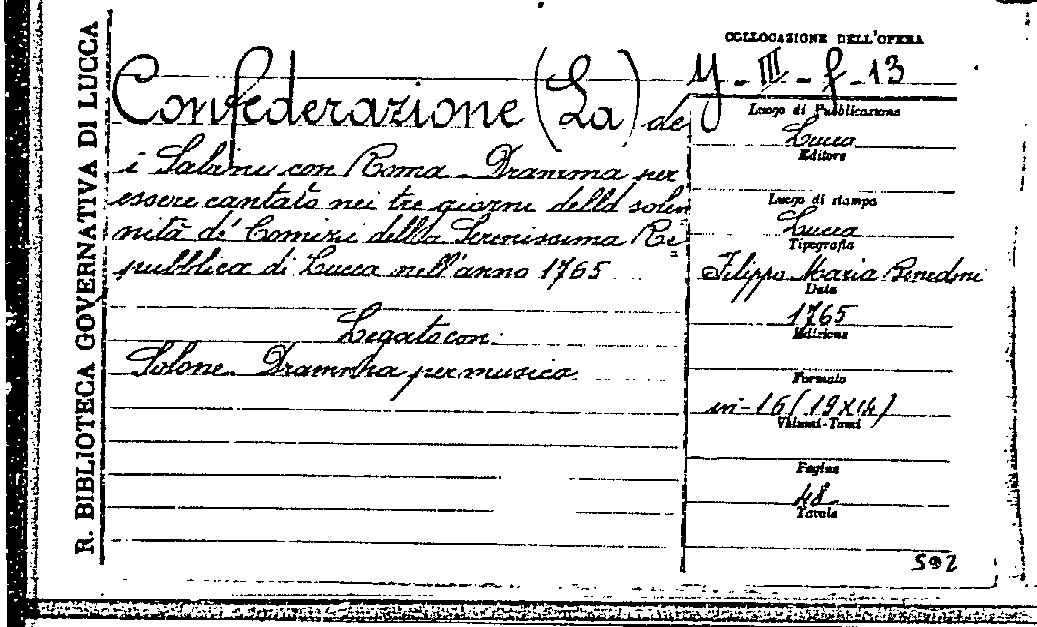 R. BIBLIOTECA GOVERNATIVA DI LUCCA
Confederazione (La) de
i Sabini con Roma - Dramma per
essere cantato nei tre giorni della solen
nità de' Comizi della Serenissima Re=
pubblica di Lucca nell'anno 1765
Legato con:
Solone. Dramma per musica.
COLLOCAZIONE DELL'OPERA
Y-III-f-13
Luogo di Pubblicazione
Lucca
Editore
Luogo di stampa
Lucca
Tipografia
Filippo Maria Benedini
Data
1765
Edizione
Formato
in-16 (19x14)
Volumi-Tomi
Pagine
48
Tavole
592